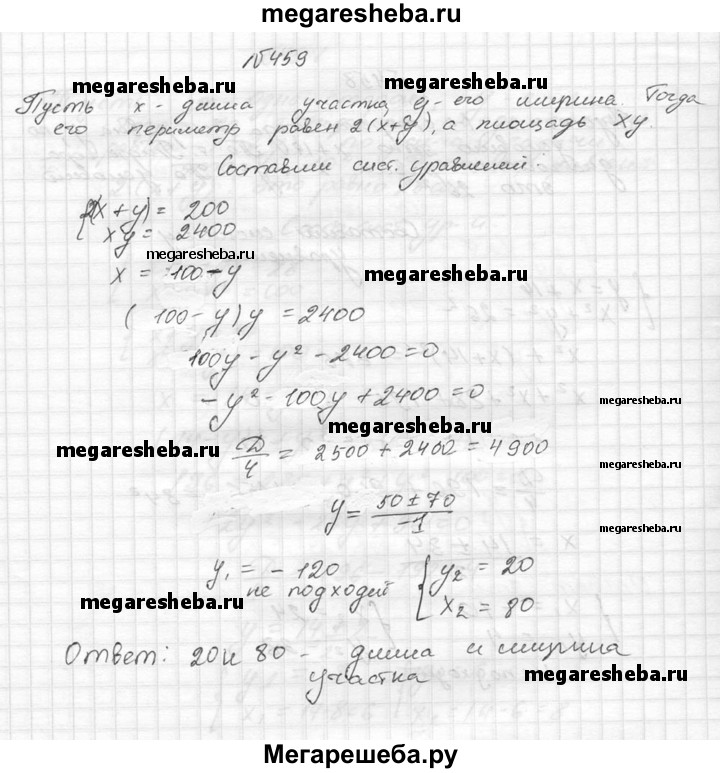 megaresheba.ru
№459
megaresheba.ru megaresheba.ru
Пусть x - длина участка, y - его ширина. Тогда
его периметр равен 2(x+y), а площадь xy.
Составим сист. уравнений:
2(x + y) = 200
xy = 2400
megaresheba.ru
x = 100 - y megaresheba.ru
(100 - y) y = 2400
100y - y² - 2400 = 0
- y² - 100y + 2400 = 0 megaresheba.ru
megaresheba.ru
D/4 = 2500 + 2400 = 4900
megaresheba.ru
y = (50 ± 70)/-1
megaresheba.ru
y₁ = - 120 y₂ = 20
не подходит x₂ = 80
megaresheba.ru
Ответ: 20 и 80 - длина и ширина
участка megaresheba.ru
Мегарешеба.ру